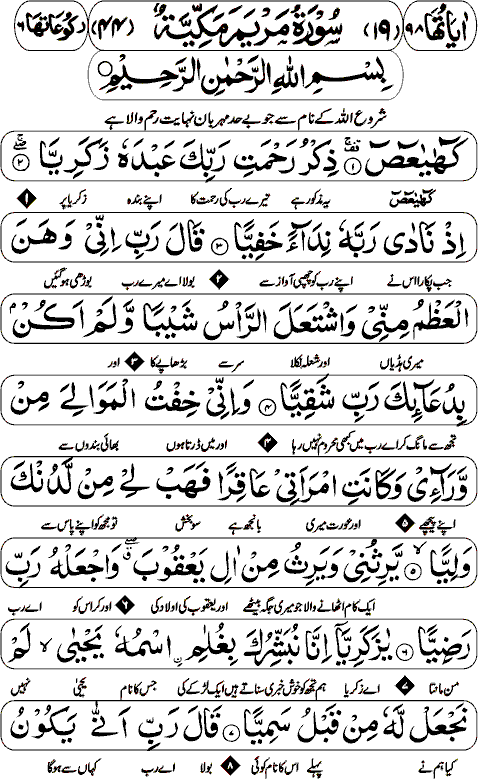 اٰيَاتُهَا ٩٨ (١٩) سُوْرَةُ مَرْيَمَ مَكِّيَّةٌ (٤٤) رُكُوْعَاتُهَا ٦
بِسْمِ اللهِ الرَّحْمٰنِ الرَّحِيْمِ
شروع اللہ کے نام سے جو بے حد مہربان نہایت رحم والا ہے
كٓهٰيٰعٓصٓ ۚ ١ ذِكْرُ رَحْمَتِ رَبِّكَ عَبْدَهٗ زَكَرِيَّا ۖ ٢
کھیٰعص یہ مذکور ہے تیرے رب کی رحمت کا اپنے بندہ زکریا پر ١
اِذْ نَادٰى رَبَّهٗ نِدَآءً خَفِيًّا ٣ قَالَ رَبِّ اِنِّىْ وَهَنَ
جب پکارا اس نے اپنے رب کو چھپی آواز سے ٢ بولا اے میرے رب بوڑھی ہو گئیں
الْعَظْمُ مِنِّىْ وَاشْتَعَلَ الرَّاْسُ شَيْبًا وَّلَمْ اَكُنْۢ
میری ہڈیاں اور شعلہ نکلا سر سے بڑھاپے کا ٣ اور
بِدُعَآئِكَ رَبِّ شَقِيًّا ٤ وَاِنِّىْ خِفْتُ الْمَوَالِىَ مِنْ
تجھ سے مانگ کر اے رب میں کبھی محروم نہیں رہا ٤ اور میں ڈرتا ہوں بھائی بندوں سے
وَّرَآءِىْ وَكَانَتِ امْرَاَتِىْ عَاقِرًا فَهَبْ لِىْ مِنْ لَّدُنْكَ
اپنے پیچھے ٥ اور عورت میری بانجھ ہے سو بخش تو مجھ کو اپنے پاس سے
وَلِيًّا ۙ ٥ يَّرِثُنِىْ وَيَرِثُ مِنْ اٰلِ يَعْقُوْبَ ۖ وَاجْعَلْهُ رَبِّ
ایک کام اٹھانے والا جو میری جگہ بیٹھے اور یعقوب کی اولاد کی ٦ اور کر اس کو اے رب
رَضِيًّا ٦ يٰزَكَرِيَّآ اِنَّا نُبَشِّرُكَ بِغُلٰمِ ِۨاسْمُهٗ يَحْيٰى ۙ لَمْ
من مانتا ٧ اے زکریا ہم تجھ کو خوش خبری سناتے ہیں ایک لڑکے کی جس کا نام یحیٰی نہیں
نَجْعَلْ لَّهٗ مِنْ قَبْلُ سَمِيًّا ٧ قَالَ رَبِّ اَنّٰى يَكُوْنُ
کیا ہم نے پہلے اس کا نام کوئی ٨ بولا اے رب کہاں سے ہوگا